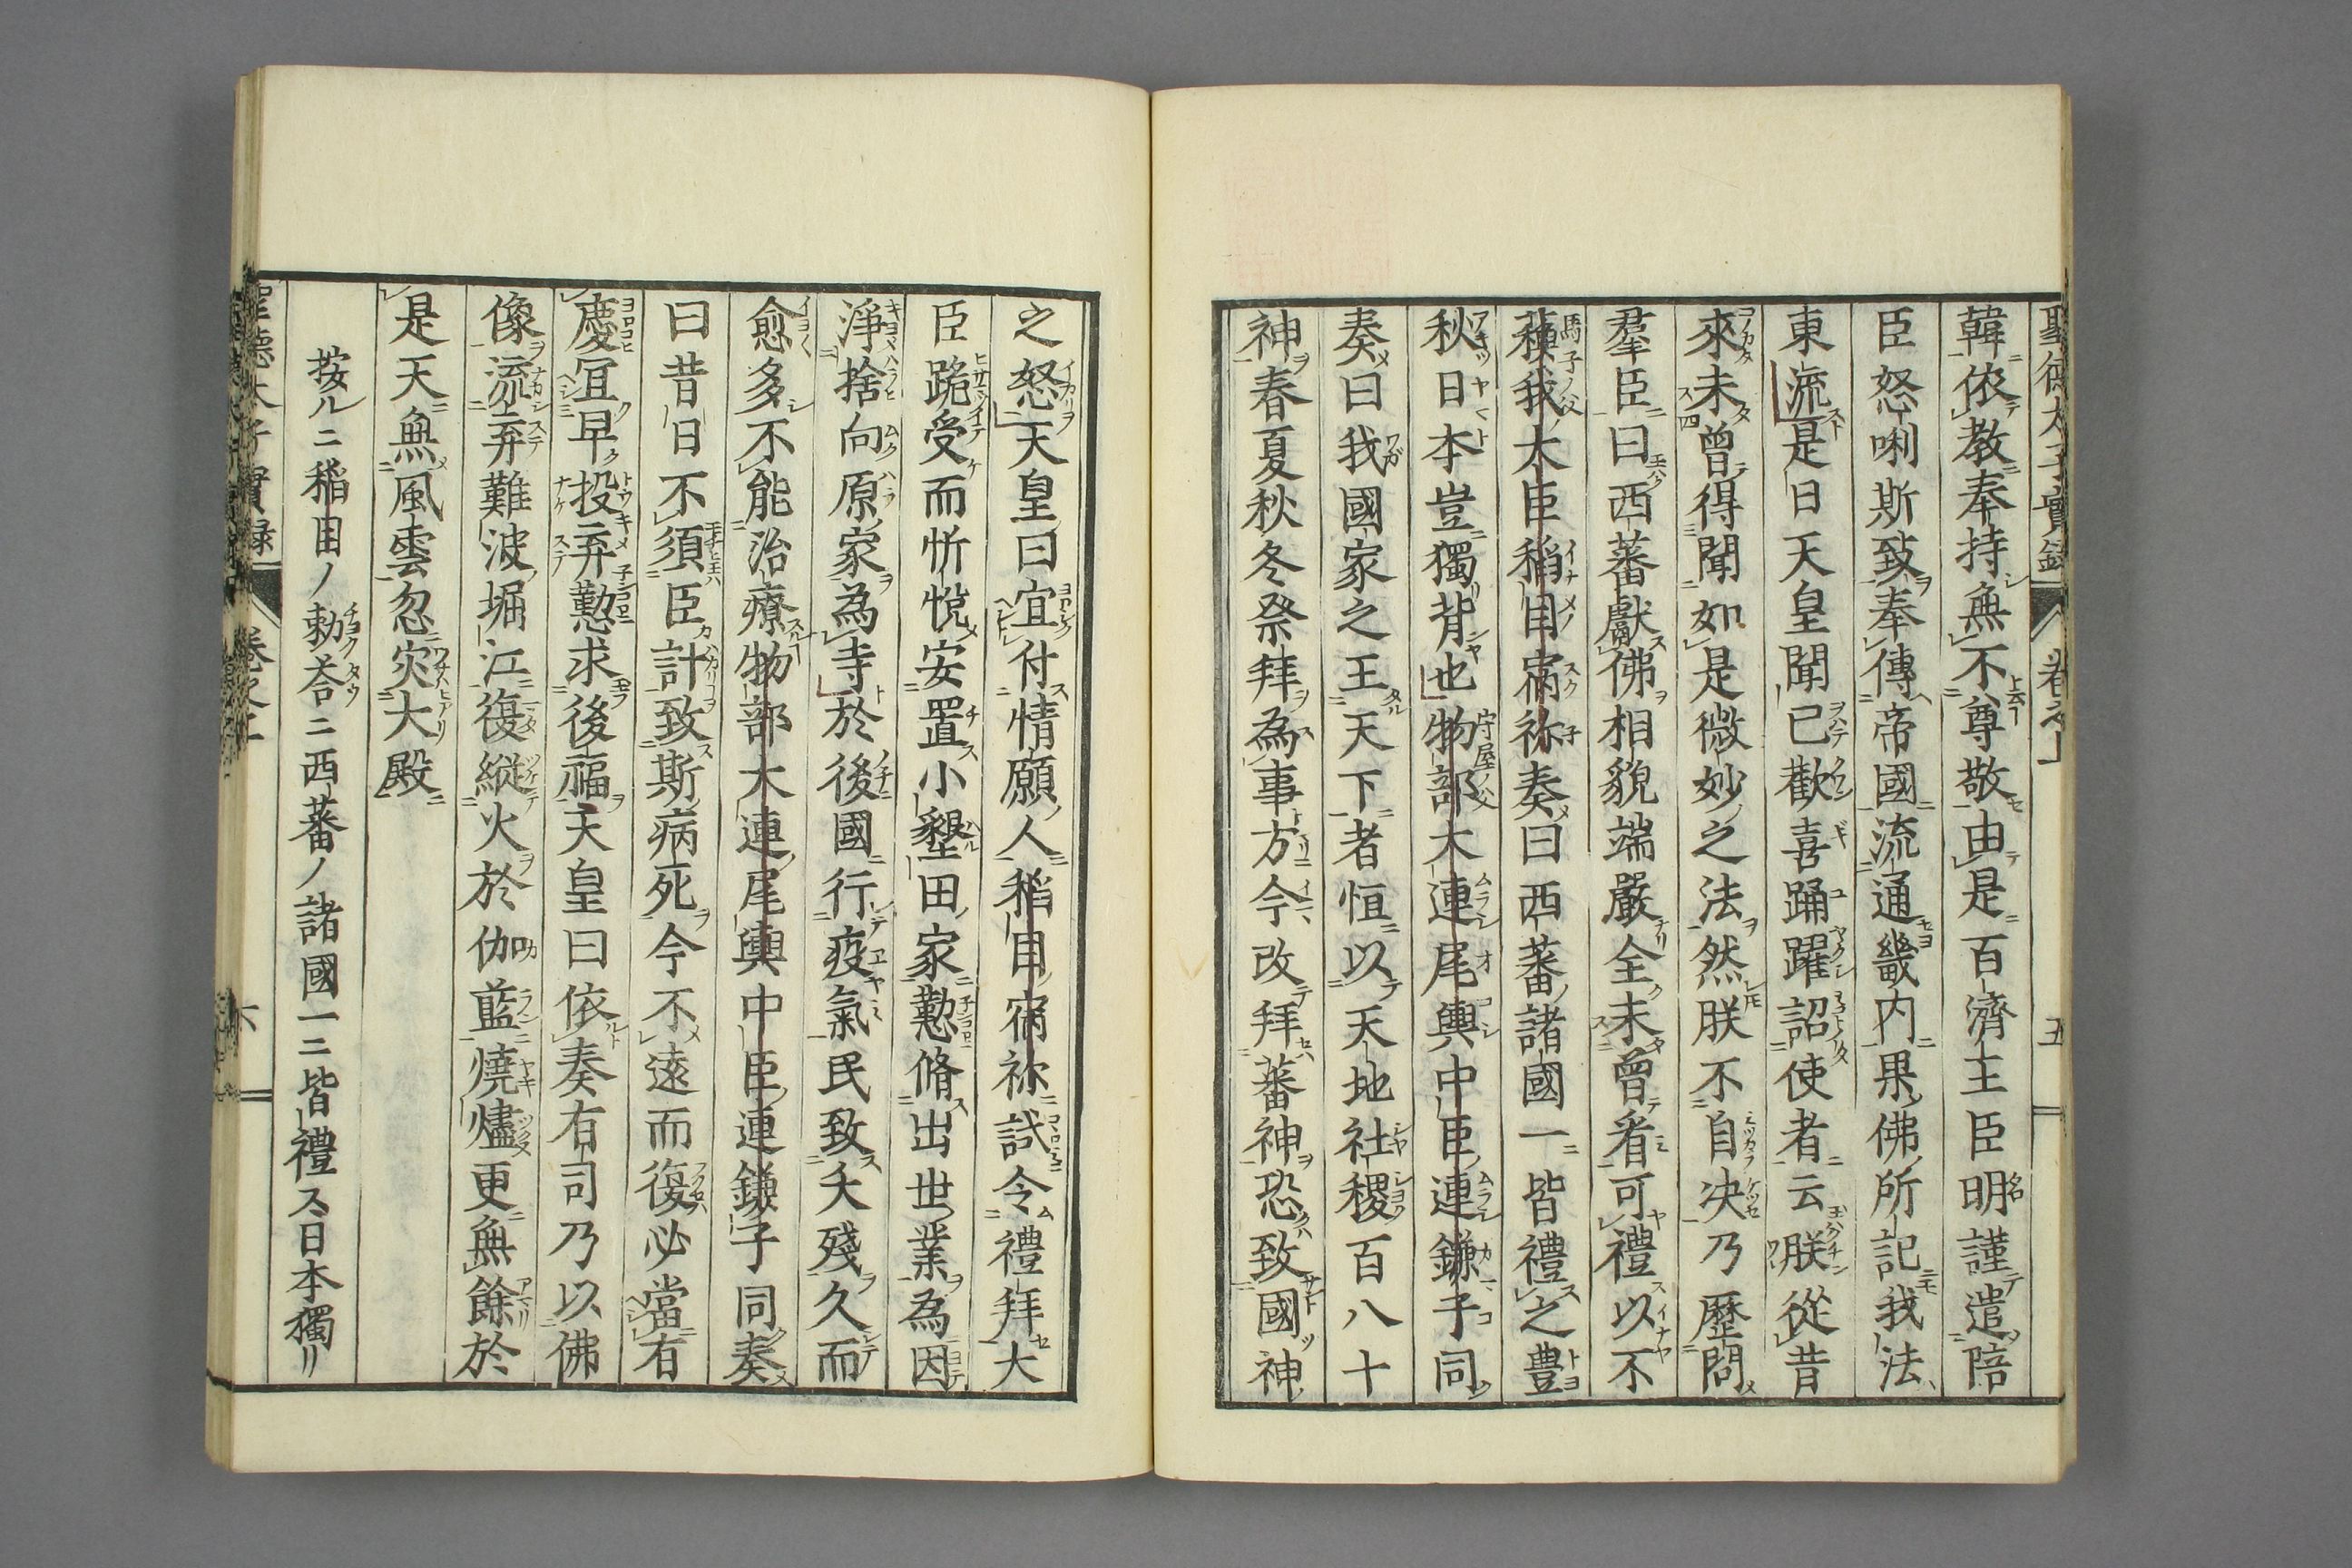 韓依教奉持無不尊敬由是百濟王臣明謹遣陪
臣怒唎斯致奉傳帝國流通畿内果佛所記我法
東流是日天皇聞已歡喜踊躍詔使者云朕從昔
來未曾得聞如是微妙之法然朕不自决乃歷問
羣臣曰西蕃獻佛相貌端嚴全未曾看可禮以不
蘓我大臣稻目宿祢奏曰西蕃諸國一皆禮之豊
秋日本豈獨背也物部大連尾輿中臣連鎌子同
奏曰我國家之王天下者恒以天地社稷百八十
神春夏秋冬祭拜為事方今改拜蕃神恐致國神
之怒天皇曰宜付情願人稻目宿祢試令禮拜大
臣跪受而忻悅安置小墾田家懃脩出世業為因
淨捨向原家為寺於後國行疫氣民致夭殘久而
愈多不能治療物部大連尾輿中臣連鎌子同奏
曰昔日不須臣計致斯病死今不遠而復必當有
慶宜早投弃懃求後福天皇曰依奏有司乃以佛
像流弃難波堀江復縱火於伽藍燒燼更無餘於
是天無風雲忽灾大殿
按ルニ稻目ノ勅荅ニ西蕃ノ諸國一ニ皆禮ス日本獨リ
聖德太子實録 卷之上 五
聖德太子實録 卷之上 六